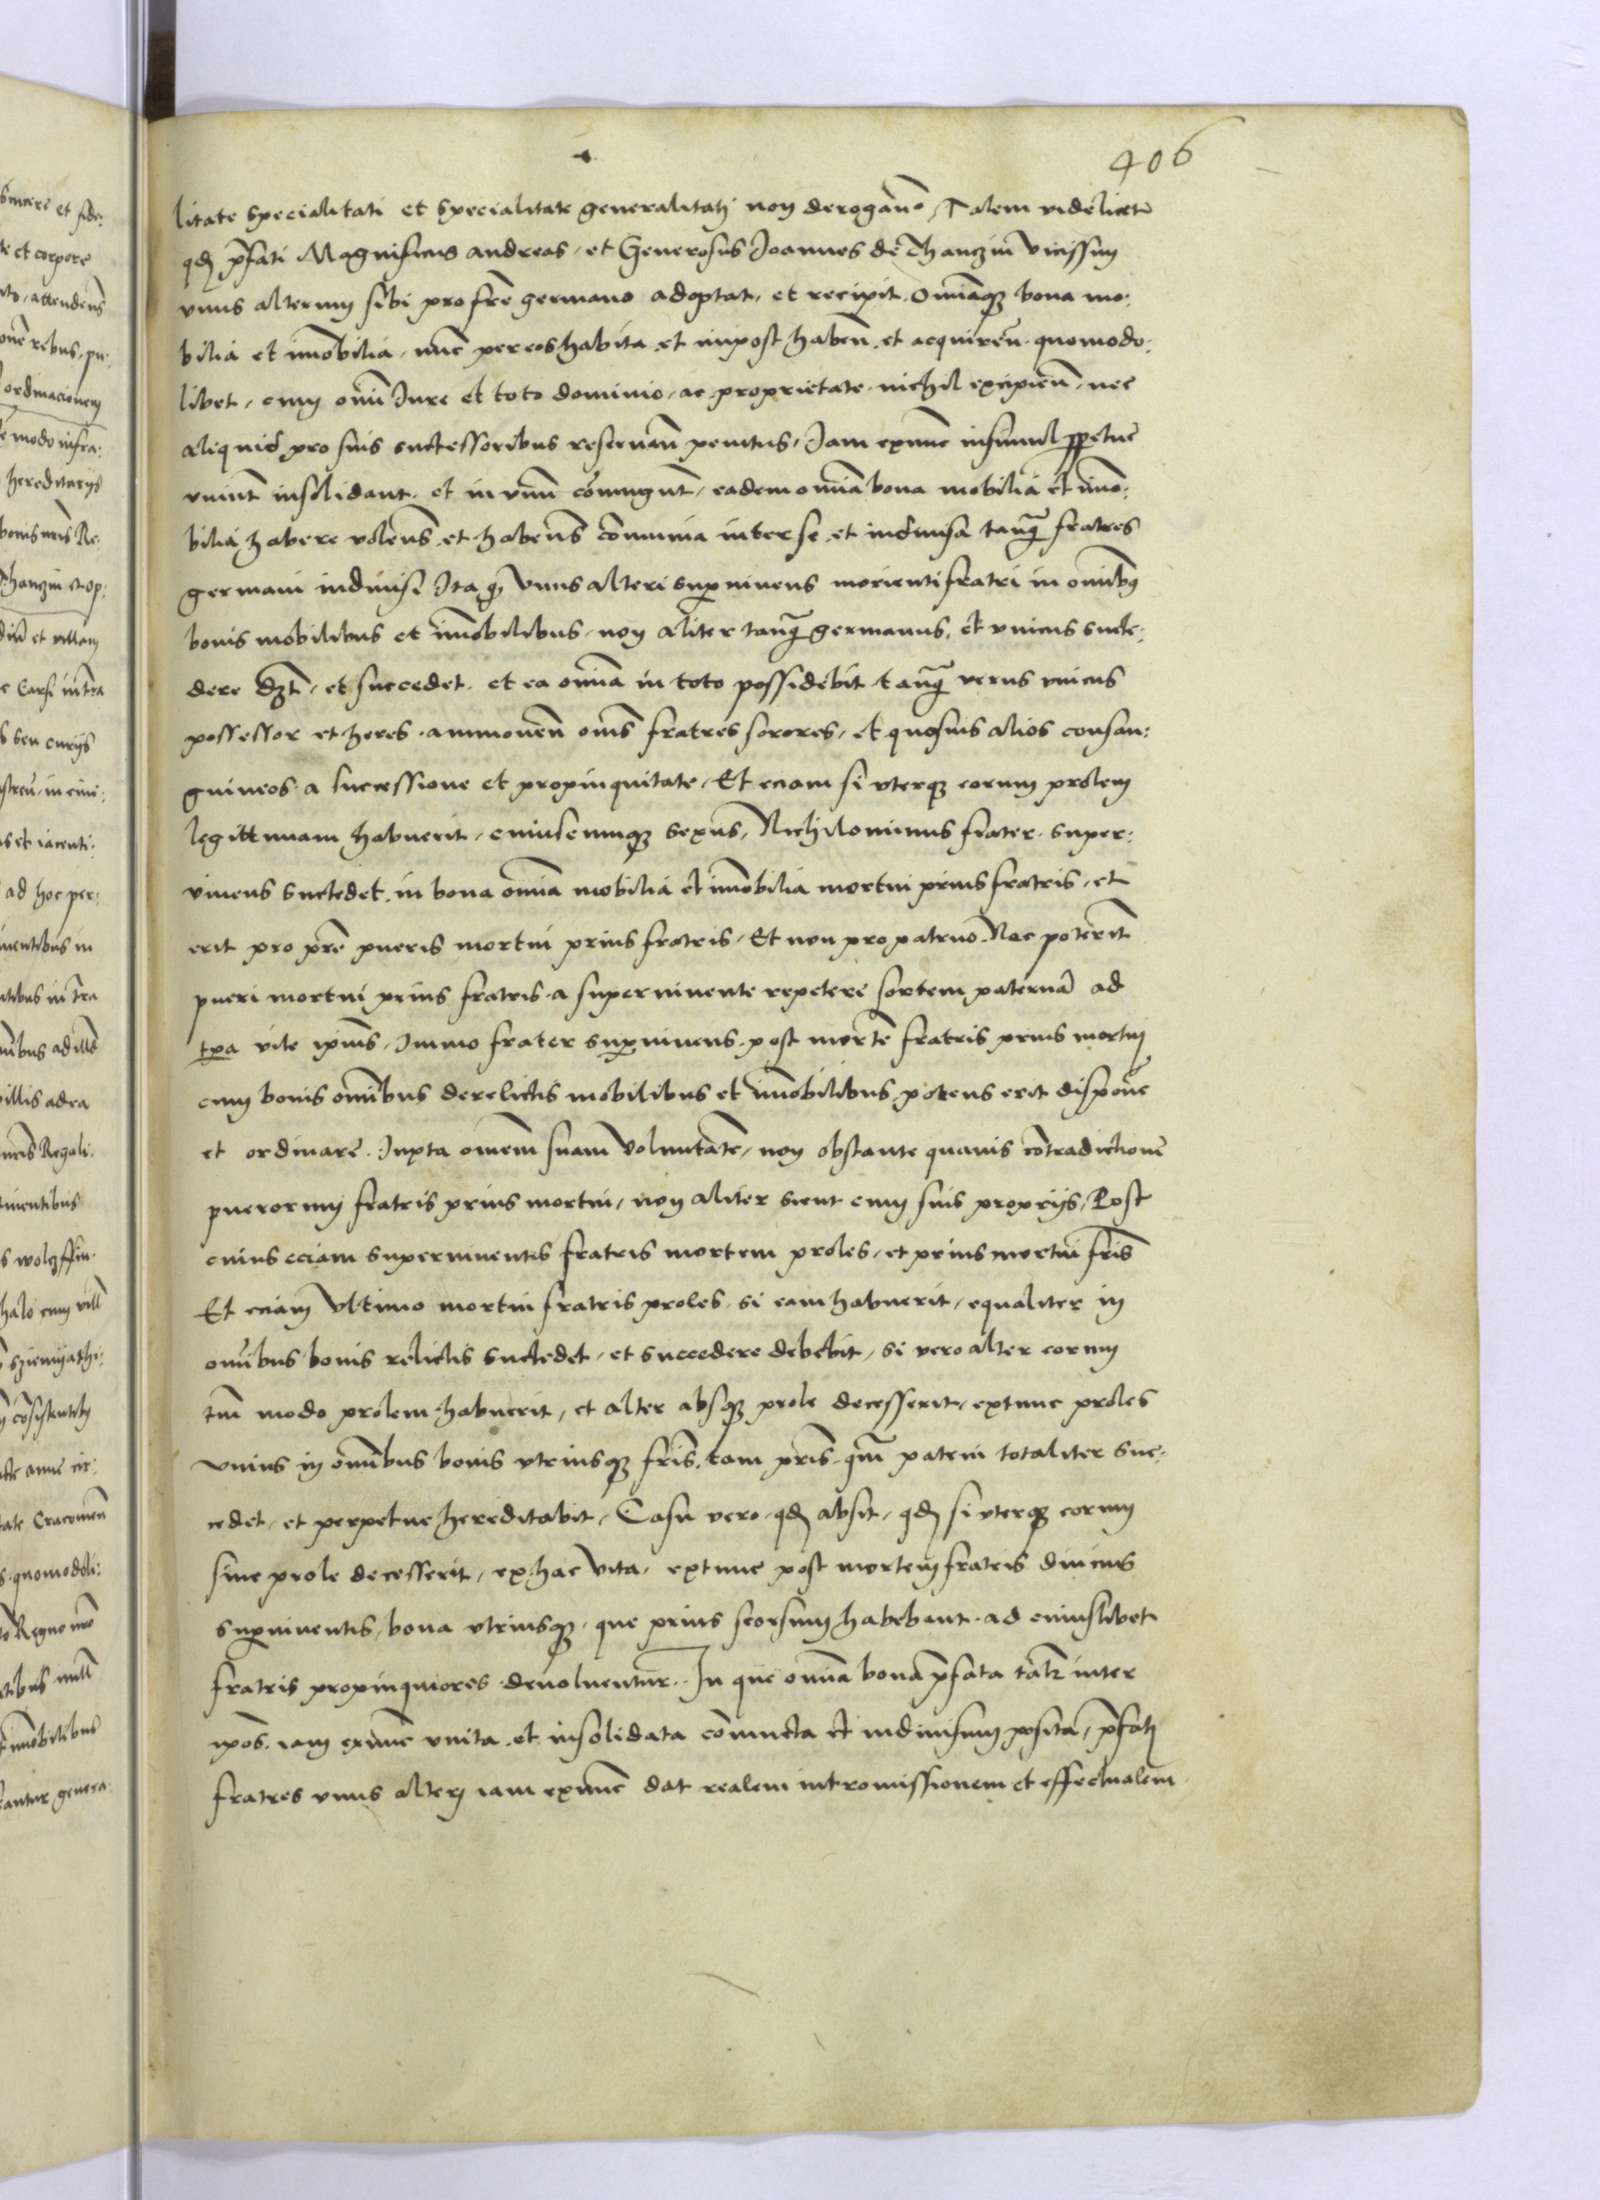 406
litate specialitati et specialitate generalitati non derogan̄. Talem videlicet
qđ p̄fati Magnificus andreas, et Generosus Joannes de Thanczin vicissim
vnus alterum sibi pro fr̄e germano adoptat, et recipit. Omniaq₃ bona mo:
bilia et im̄obilia, nūc per eos habita et inpost haben̄. et acquiren̄. quomodo:
libet, cum om̄i Jure et toto dominio, ac proprietate nichil excipien̄, nec
aliquid pro suis successoribus reseruan̄ penitus, Jam exnunc insimul ꝑpetue
vniunt insolidant. et in vnū coniungūt, eadem om̄ia bona mobilia et im̄o:
bilia habere volens et habens com̄unia inter se et indiuisa tanq̄ fratres
germani indiuisi Ita q̄ vnus alteri suꝑuiuens morienti fratri in om̄ib₉
bonis mobilibus et im̄obilibus, non aliter tanq̄ germanus, et vnicus succe:
dere dz̄t, et succedet. et ea om̄ia in toto possidebit tanq̄ verus vnicus
possessor et heres. ammouen̄ om̄s fratres sorores, et quosuis alios consan:
guineos a successione et propinquitate, Et eciam si vterq₃ eorum prolem
legittimam habuerit, cuiuscumq₃ sexus, Nichilominus frater super:
viuens succedet in bona om̄ia mobilia et im̄obilia mortui prius fratris, et
erit pro pr̄e pueris mortui prius fratris, Et non pro patruo. Nec poterit
pueri mortui prius fratris a superuiuente repetere sortem paternā ad
tꝑa vite ip̄ius, Immo frater suꝑuiuens post mortē fratris prius mortui
cum bonis om̄ibus derelictis mobilibus et im̄obilibus potens erit disponē
et ordinare. Iuxta om̄em suam voluntatē, non obstante quauis cōtradictione
puerorum fratris prius mortui, non aliter sicut cum suis proprijs, Post
cuius eciam superuiuentis fratris mortem proles, et prius mortui fr̄is
Et eciam vltimo mortui fratris proles si eam habuerit, equaliter in
om̄ibus bonis relictis succedet, et succedere debebit, si vero alter eorum
tm̄ modo prolem habuerit, et alter absq₃ prole decesserit, extunc proles
vnius in om̄ibus bonis vtriusq₃ fr̄is, tam pr̄is qm̄ patrui totaliter suc:
cedet, et perpetue hereditabit, Casu vero, qđ absit, qđ si vterq₃ eorum
sine prole decesserit, ex hac vita, extunc post mortem fratris diucius
suꝑuiuentis, bona vtriusq₃, que prius seorsum habebant ad cuiuslibet
fratris propinquiores deuoluentur. In que om̄ia bona p̄fata tal'r inter
ip̄os iam exnunc vnita et insolidata coniuncta et indiuisum posita, p̄fati
fratres vnus alteri iam exnunc dat realem intromissionem et effectualem